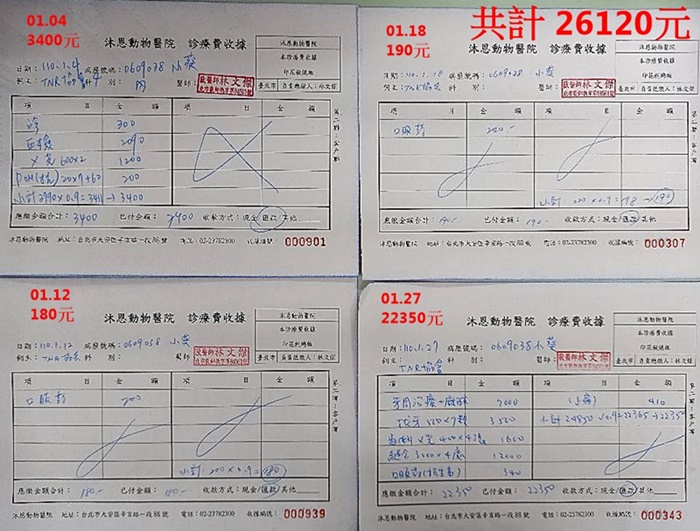 共計 26120元
01.04
3400元
沐恩動物醫院 診療費收據
沐恩動物醫院
本診療費收據
印花稅總繳
日期：110.1.4 病歷號碼：0609038 小葵
飼主：TNR協會 科別：內 醫師：獸醫師林文傑
臺北市 負責總繳人：林文傑
項 目 金 額 項 目 金 額
診 300
血檢 2090
X光 600x2 1200
200
小計 0.9=3411→3400
應繳金額合計：3400 已付金額：3400 收款方式：現金/匯款/其他
沐恩動物醫院 地址：台北市大安區辛亥路一段86號 電話：02-23782300 收據編號：000901
01.18
190元
沐恩動物醫院 診療費收據
沐恩動物醫院
本診療費收據
印花稅總繳
日期：110.1.18 病歷號碼：小葵
飼主：TNR協會 科別： 醫師：獸醫師林文傑
臺北市 負責總繳人：林文傑
項 目 金 額 項 目 金 額
口服藥
小計 0.9=198→190
應繳金額合計：190 已付金額：190 收款方式：現金/匯款/其他
沐恩動物醫院 地址：台北市大安區辛亥路一段86號 電話：02-23782300 收據編號：000307
01.12
180元
沐恩動物醫院 診療費收據
沐恩動物醫院
本診療費收據
印花稅總繳
日期：110.1.12 病歷號碼：0609038 小葵
飼主：TNR協會 科別： 醫師：獸醫師林文傑
臺北市 負責總繳人：林文傑
項 目 金 額 項 目 金 額
口服藥 200
小計 200x0.9=180
應繳金額合計：180 已付金額：180 收款方式：現金/匯款/其他
沐恩動物醫院 地址：台北市大安區辛亥路一段86號 電話：02-23782300 收據編號：000939
01.27
22350元
沐恩動物醫院 診療費收據
沐恩動物醫院
本診療費收據
印花稅總繳
日期：110.1.27 病歷號碼：0609038 小葵
飼主：TNR協會 科別： 醫師：獸醫師林文傑
臺北市 負責總繳人：林文傑
項 目 金 額 項 目 金 額
牙周治療+麻醉 7000 410
拔牙 小計 24850x0.9=22365→22350
X光 400x4張 1600
縫合 3000x4 12000
口服藥 340
應繳金額合計：22350 已付金額：22350 收款方式：現金/匯款/其他
沐恩動物醫院 地址：台北市大安區辛亥路一段86號 電話：02-23782300 收據編號：000343